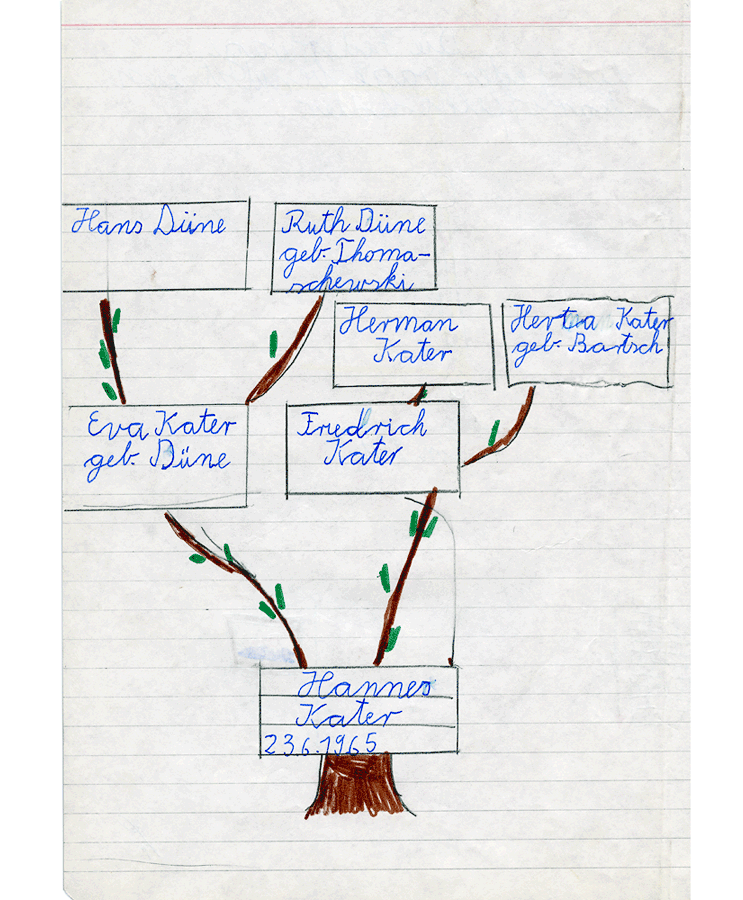 Hans Düne
Ruth Düne
geb. Thoma-
schewski
Herman
Kater
Herta Kater
geb. Bartsch
Eva Kater
geb. Düne
Friedrich
Kater
Hannes
Kater
23.6.1965